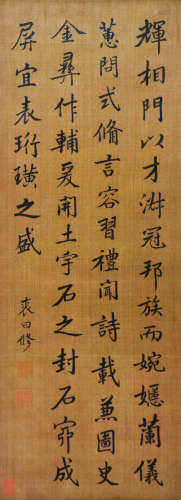 輝相門以才淋冠邦族而婉嫕蘭儀
蕙問式脩言容習禮聞詩載兼圖史
金彝作輔爰開土宇石之封石窌成
屏宜表珩璜之盛
裘曰修